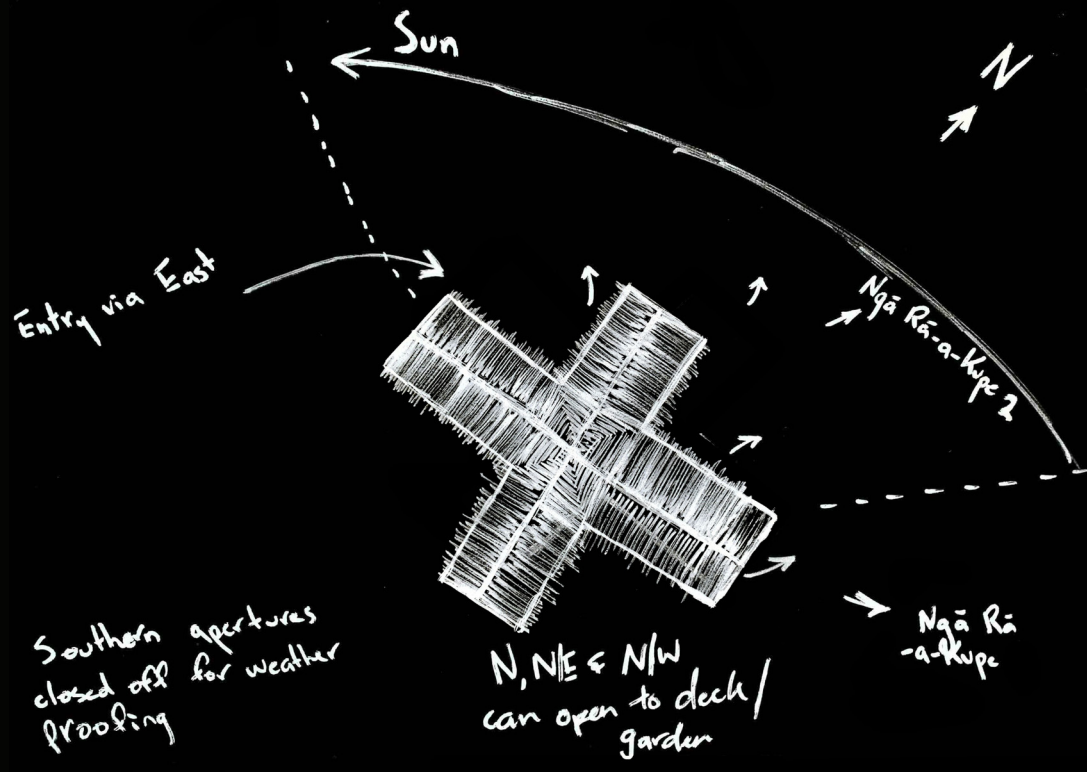 Sun
N
Entry via East
Ngā Rā-a-Kupe 2
Southern apertures
closed off for weather
proofing
N, N/E & N/W
can open to deck/
garden
Ngā Rā
-a-Kupe